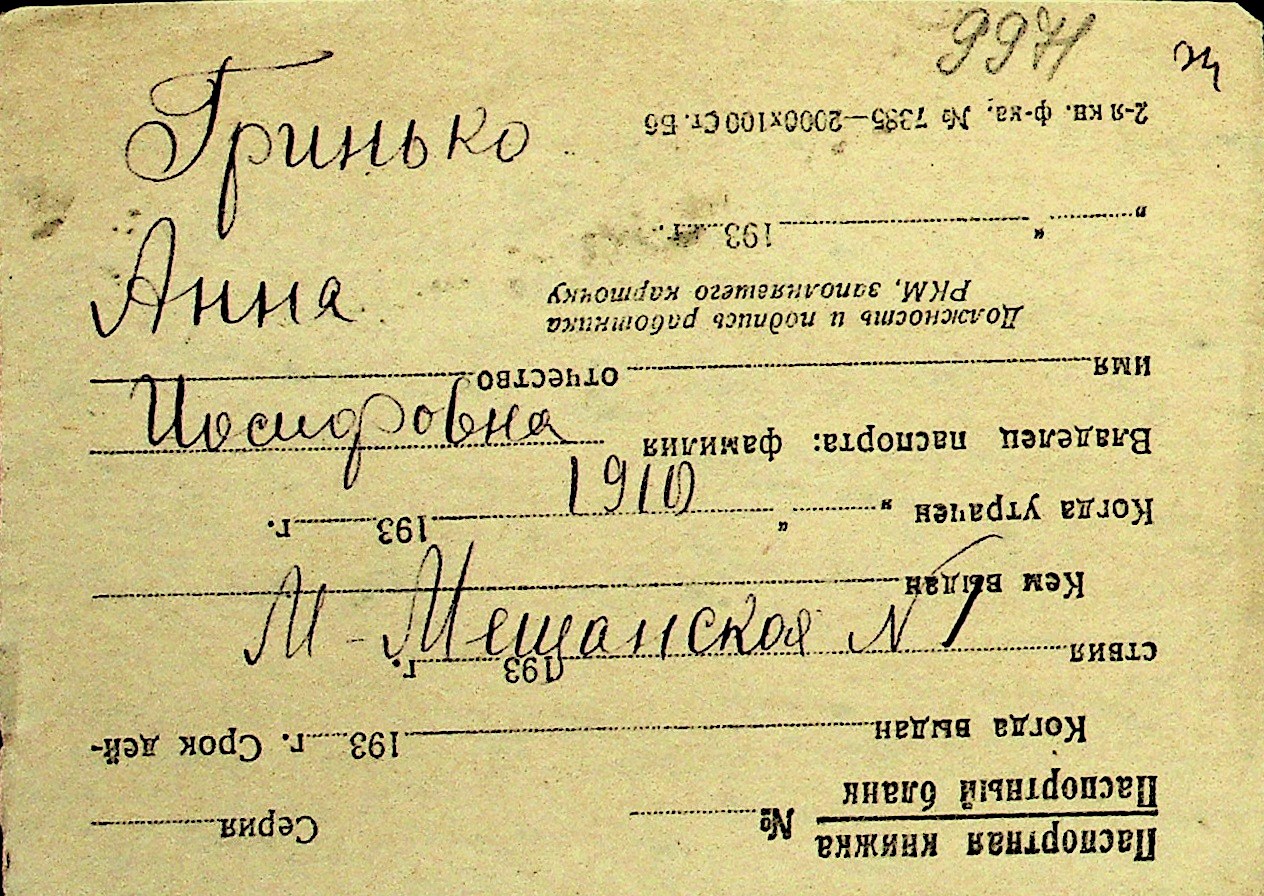 997
Гринько
Анна
Иосифовна
1910
М-Мещанская N 1
Паспортная книжка
Паспортный бланк № Серия
Когда выдан 193 г. Срок дей-
ствия 193 г.
Кем выдан
Когда утрачен " " 193 г.
Владелец паспорта: фамилия
имя отчество
Должность и подпись работника
РКМ, заполнявшего карточку
" " 193 г.
2-я кв. ф-ка, № 7385—2000х100 Ст. Бб